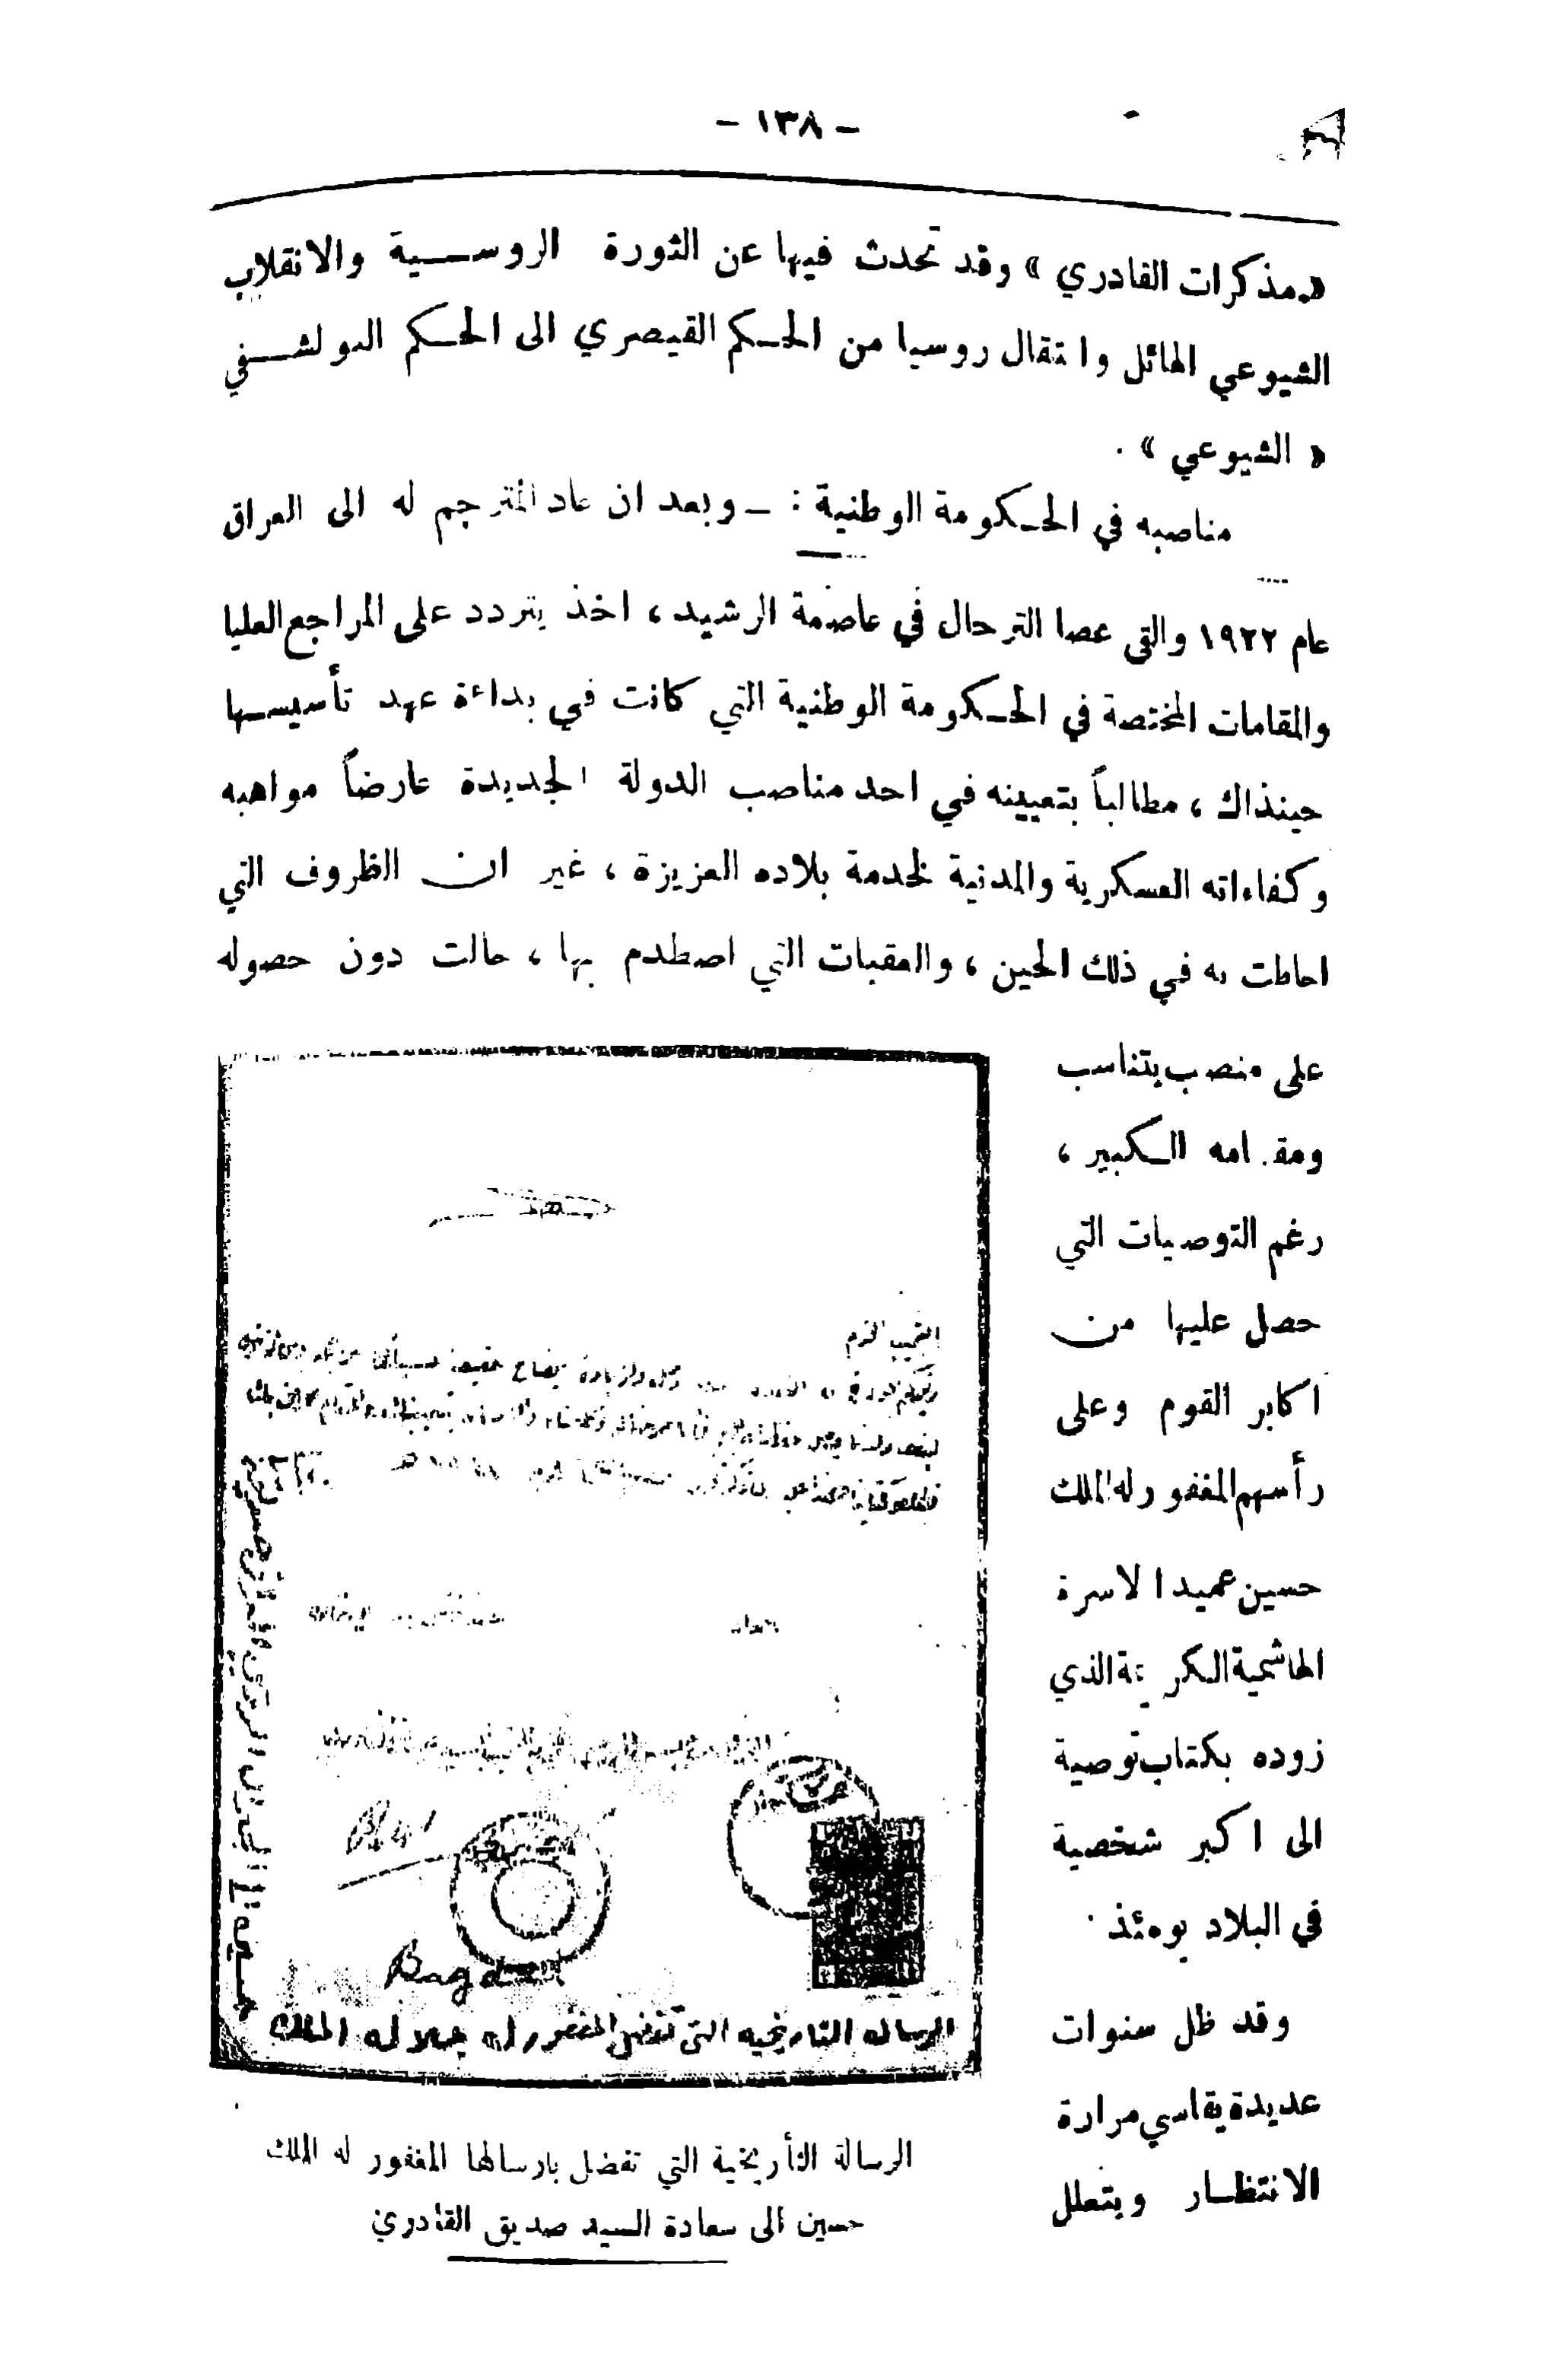 - ١٣٨ -
« مذكرات القادري » وقد تحدث فيها عن الثورة الروسية والانقلاب
الشيوعي الهائل وانتقال روسيا من الحكم القيصري الى الحكم البولشفي
« الشيوعي » .
مناصبه في الحكومة الوطنية : ـ وبعد ان عاد المترجم له الى العراق
عام ١٩٢٢ والقى عصا الترحال في عاصمة الرشيد ، اخذ يتردد على المراجع العليا
والمقامات المختصة في الحكومة الوطنية التي كانت في بداءة عهد تأسيسها
حينذاك ، مطالباً بتعيينه في احد مناصب الدولة الجديدة عارضاً مواهبه
وكفاءاته العسكرية والمدنية لخدمة بلاده العزيزة ، غير ان الظروف التي
احاطت به في ذلك الحين ، والعقبات التي اصطدم بها ، حالت دون حصوله
على منصب يتناسب
ومقامه الكبير ،
رغم التوصيات التي
حصل عليها من
اكابر القوم وعلى
رأسهم المغفور له الملك
حسين عميد الاسرة
الهاشمية الكريمة الذي
زوده بكتاب توصية
الى اكبر شخصية
في البلاد يومئذ .
وقد ظل سنوات
عديدة يقاسي مرارة
الانتظار ويتعلل
Bagdad
الرساله التاريخيه التي تفضل المغفور له جلاله الملك
الرسالة التأريخية التي تفضل بارسالها المغفور له الملك
حسين الى سعادة السيد صديق القادري